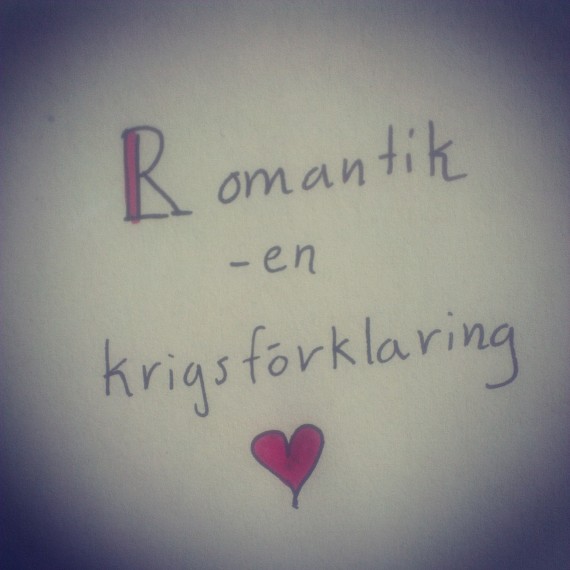 Romantik
-en
krigsförklaring